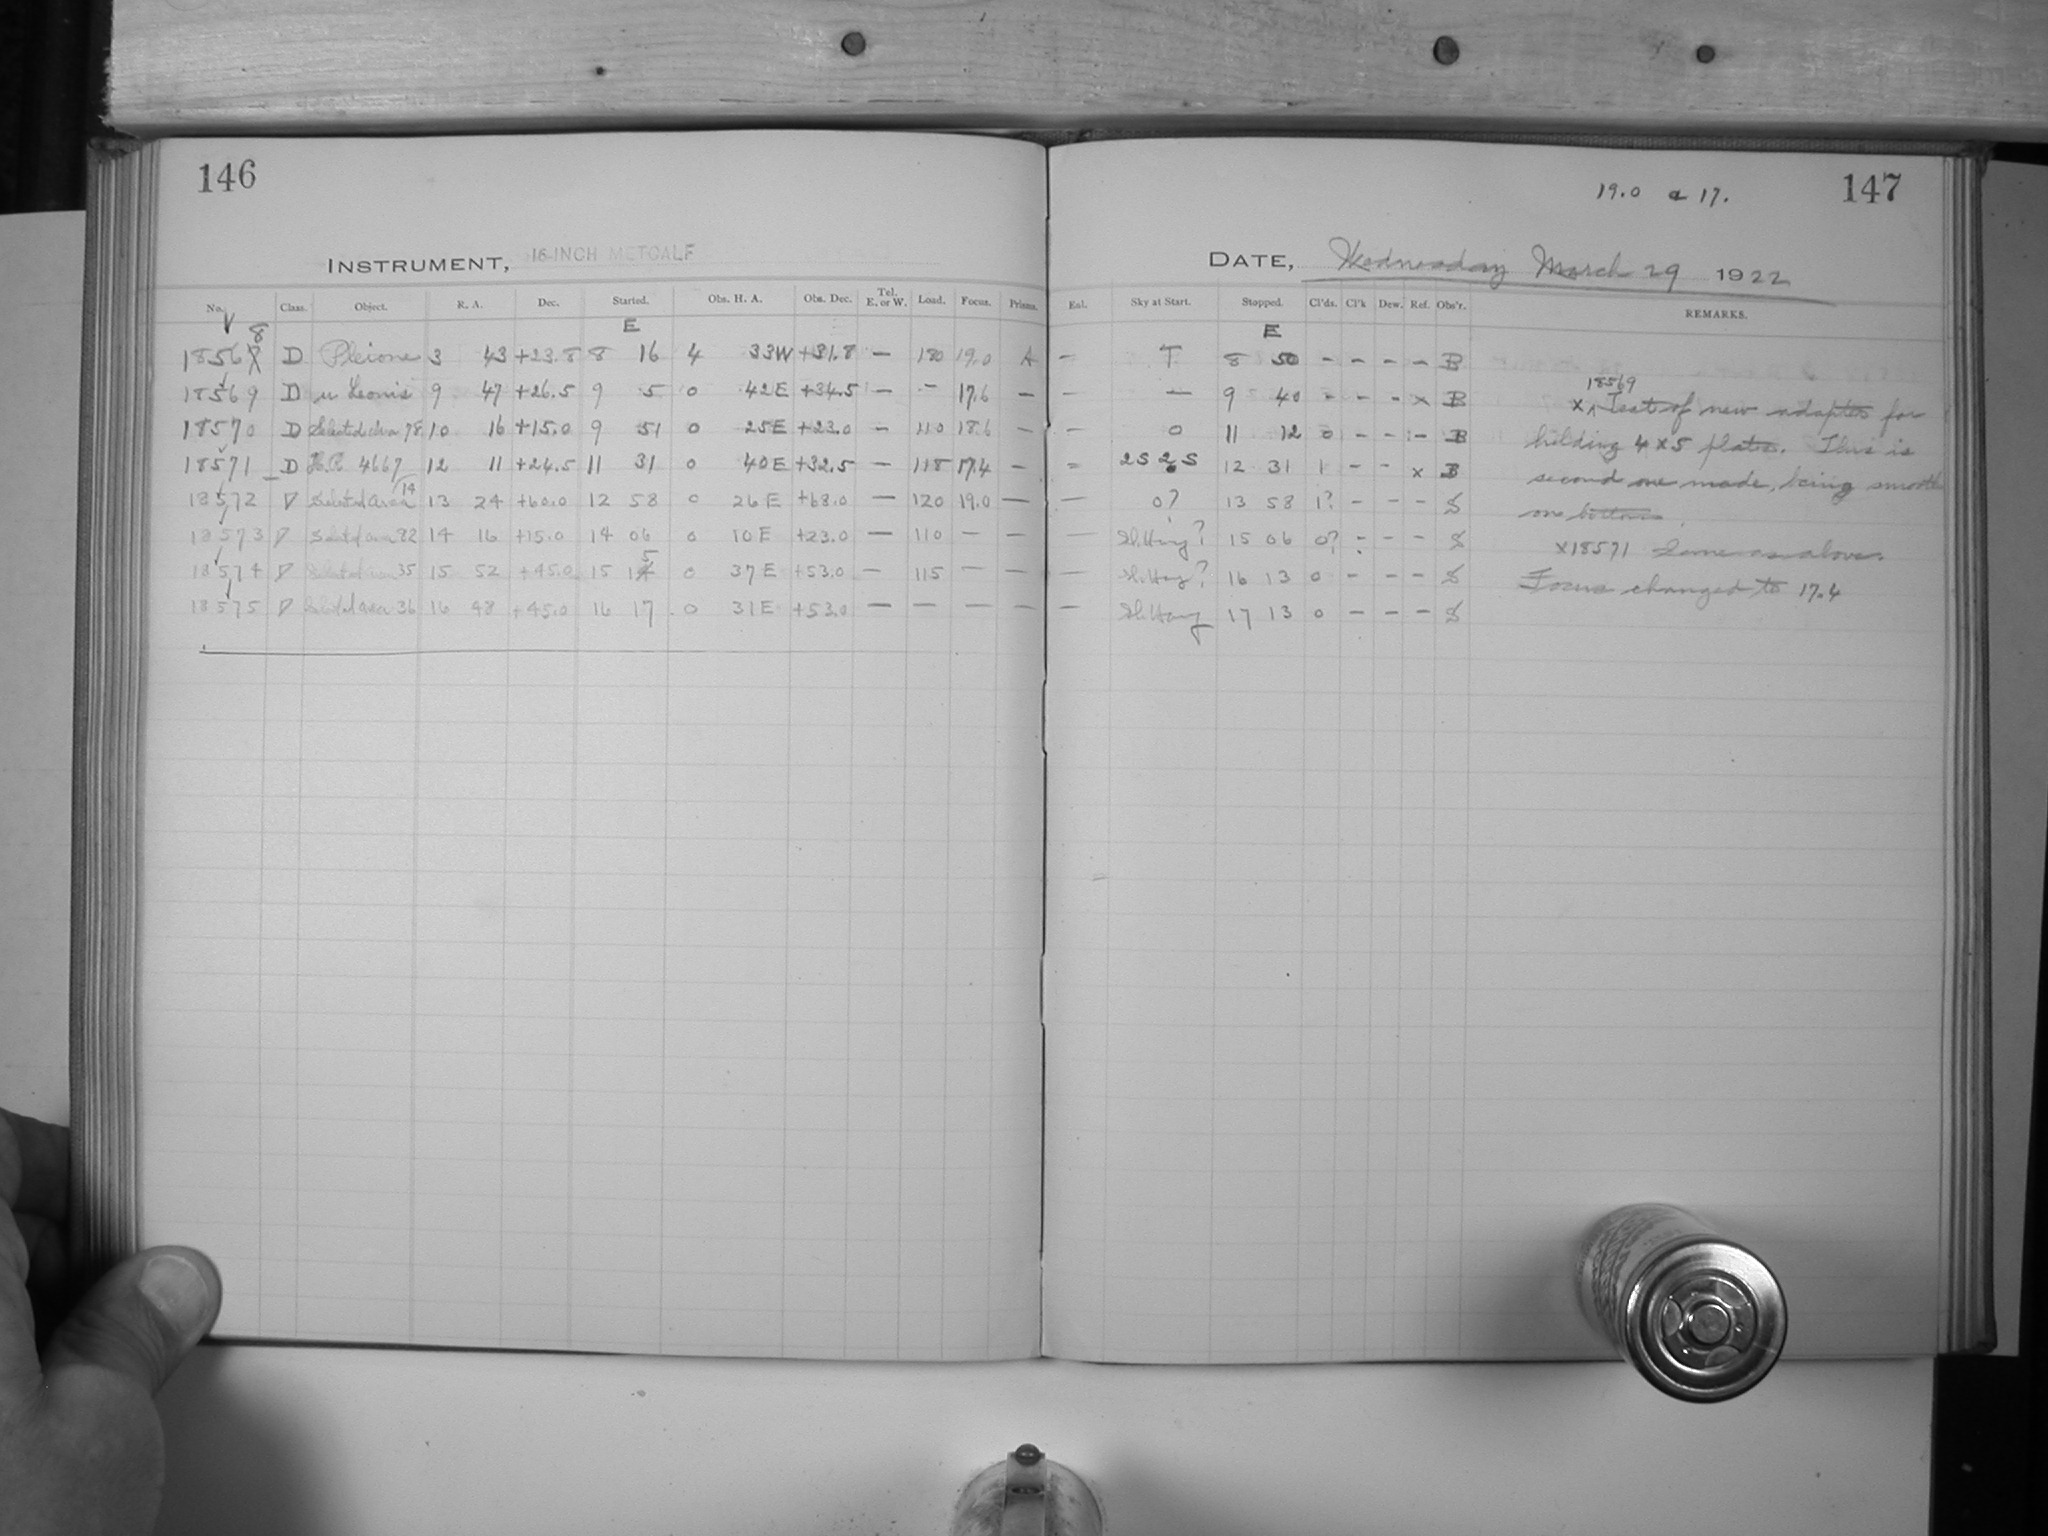 146
INSTRUMENT, 16-INCH METCALF
No. Class. Object. R. A. Dec. Started. Obs. H. A. Obs. Dec. Tel. E. or W. Load. Focus. Prisms.
E
18568 D Pleione 3 43 +23.8 8 16 4 33W +31.8 — 180 19.0 A
18569 D u Leonis 9 47 +26.5 9 5 0 42E +34.5 — - 17.6 —
18570 D Selected Area 78 10 16 +15.0 9 51 0 25E +23.0 — 110 18.6 —
18571 D H.R. 4667 12 11 +24.5 11 31 0 40E +32.5 — 118 17.4 —
18572 D Selected Area 14 13 24 +60.0 12 58 0 26E +68.0 — 120 19.0 —
18573 D Selected Area 82 14 16 +15.0 14 06 0 10E +23.0 — 110 — —
18574 D Selected Area 35 15 52 +45.0 15 15 0 37E +53.0 — 115 — —
18575 D Selected Area 36 16 48 +45.0 16 17 0 31E +53.0 — — — —
19.0 a 17. 147
DATE, Wednesday March 29 1922
Eal. Sky at Start. Stopped. Cl'ds. Cl'k Dew. Ref. Obs'r. REMARKS.
E
— T 8 50 - - - - B
— — 9 40 - - - x B
— 0 11 12 0 - - - B
— 2S 2S 12 31 1 - - x B
— 0? 13 58 1? - - - S
— Sl. Hazy? 15 06 0? - - - S
— Sl. Hazy? 16 13 0 - - - S
— Sl. Hazy 17 13 0 - - - S
18569
x Test of new adapter for
holding 4 x 5 plates. This is
second one made, being smooth
on bottom.
x18571 Same as above.
Focus changed to 17.4